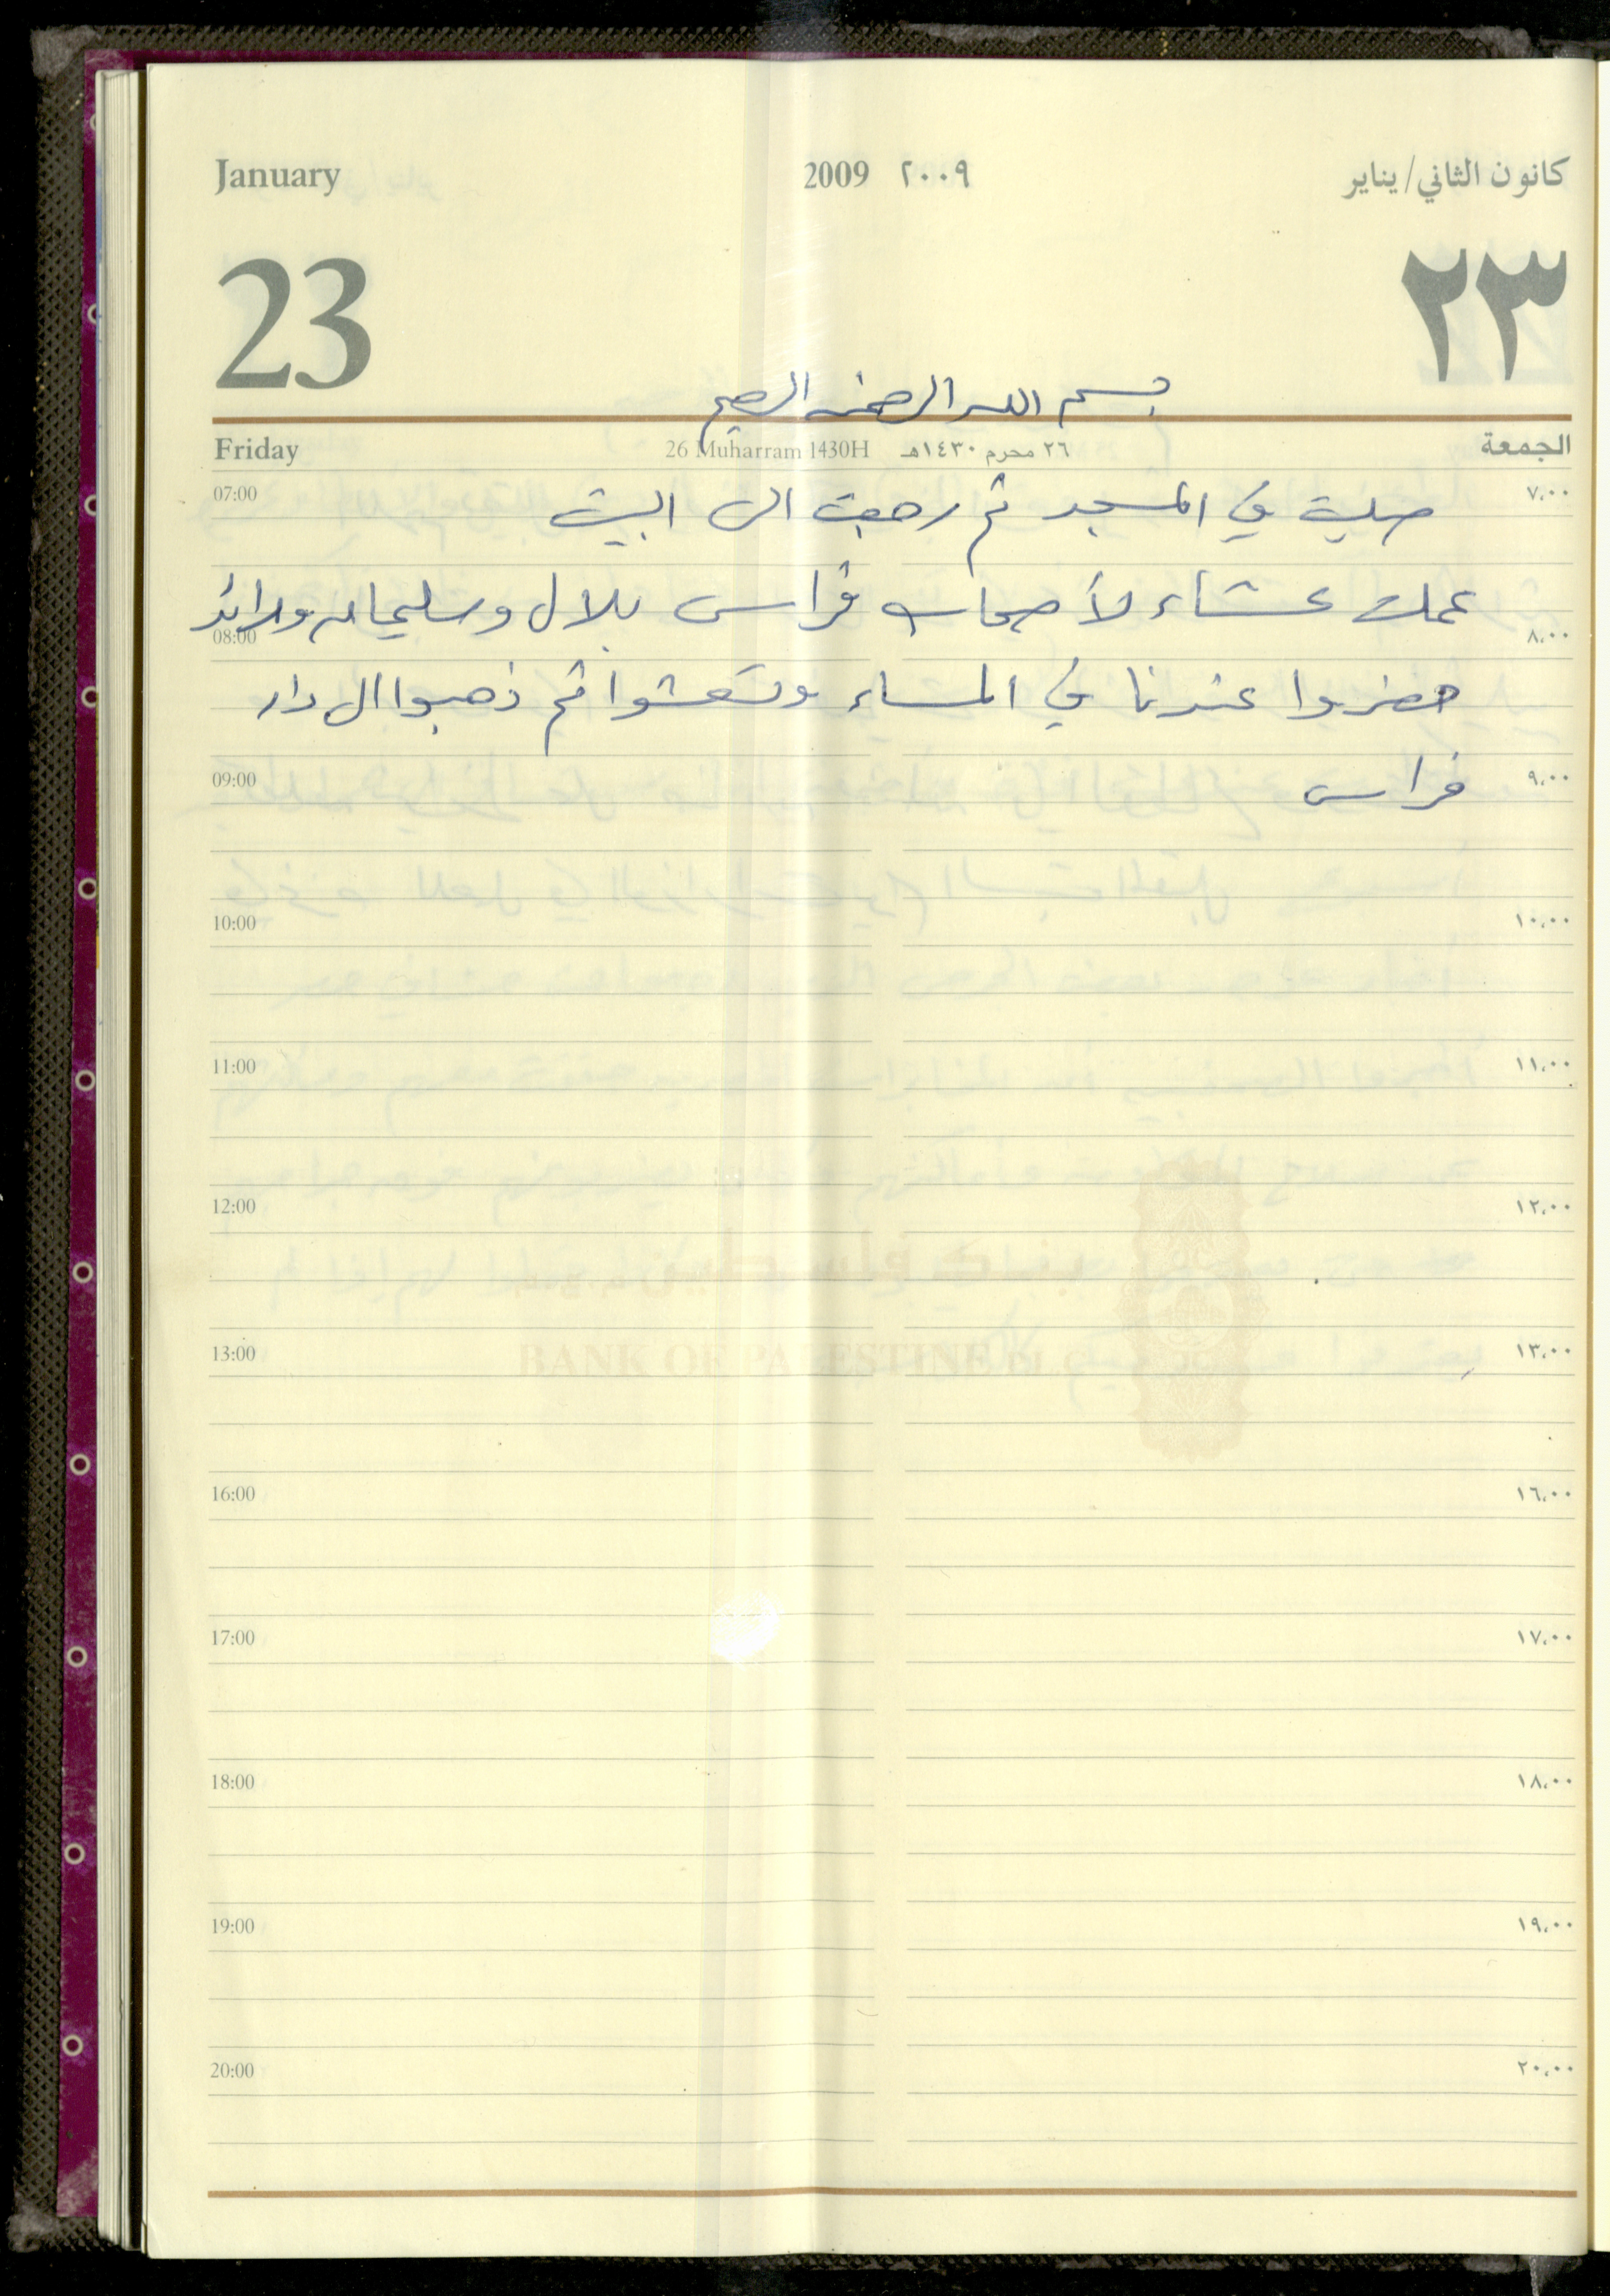 January 2009 ٢٠٠٩ كانون الثاني/يناير
23 ٢٣
بسم الله الرحمن الرحيم
Friday 26 Muharram 1430H ٢٦ محرم ١٤٣٠هـ الجمعة
07:00 صليت في المسجد ثم رجعت الى البيت ٧،٠٠
عملت عشاء لأصحاب فراس بلال وسليمان ورائد
08:00 ٨،٠٠
حضروا عندنا في المساء وتعشوا ثم ذهبوا الى دار
09:00 فراس ٩،٠٠
10:00 ١٠،٠٠
11:00 ١١،٠٠
12:00 ١٢،٠٠
بنك فلسطين
13:00 BANK OF PALESTINE PLC ١٣،٠٠
16:00 ١٦،٠٠
17:00 ١٧،٠٠
18:00 ١٨،٠٠
19:00 ١٩،٠٠
20:00 ٢٠،٠٠